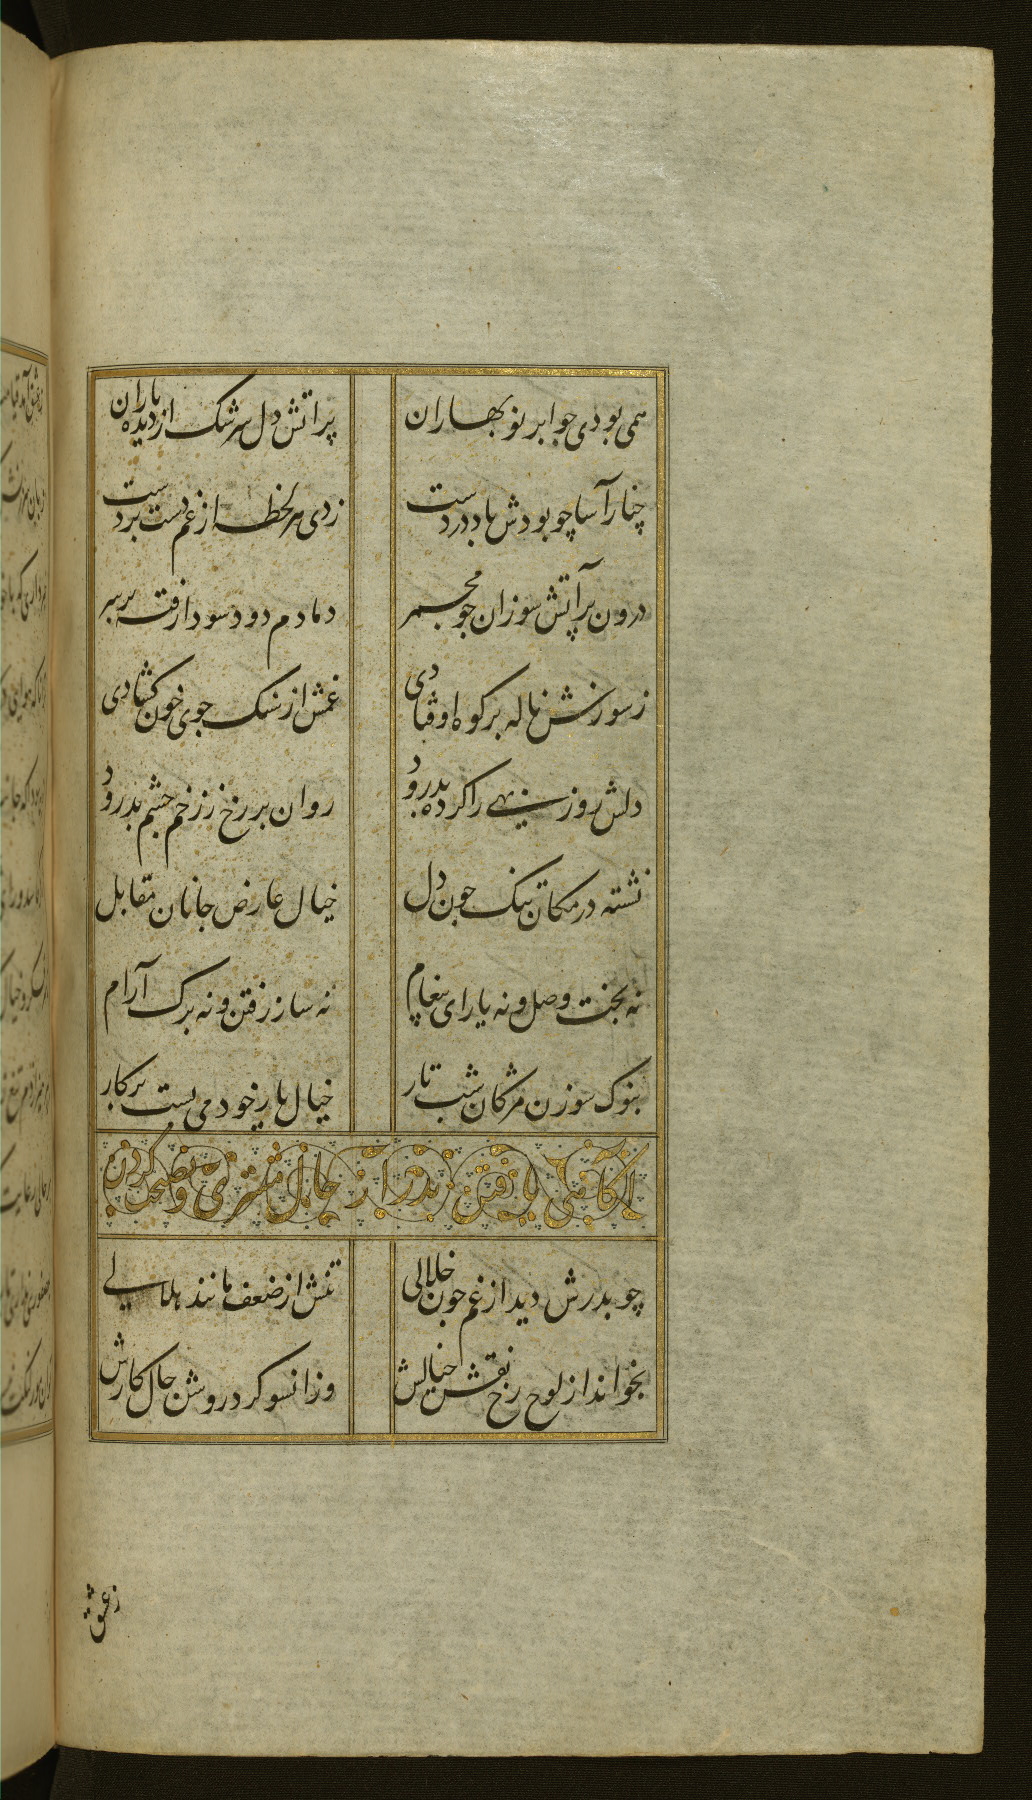 همی بودی چو ابر نو بهاران
پر اتش دل سرشک از دیده باران
چنار آسا چو بودش باد در دست
زدی هر لحظه از غم دست بر دست
درون پر آتش سوزان چو مجمر
دمادم دود سودا رفته بر سر
ز سوزش ناله بر کوه اوفتادی
غمش از سنک جوی خون کشادی
دلش روز بهی را کرده بدرود
روان بر رخ ز زخم چشم بد رود
نشسته در مکان تنک چون دل
خیال عارض جانان مقابل
نه بخت وصل و نه یارای پیغام
نه ساز رفتن و نه برک آرام
بنوک سوزن مژکان شب تار
خیال یار خود می بست بر کار
آکاهی یافتن بدر از حال مشتری و نصیحت کردن
چو بدرش دید از غم چون خلالی
تنش از ضعف مانند هلالی
بخواند از لوح رخ نقش خیالش
وزانسو کرد روشن حال کارش
ز عشق